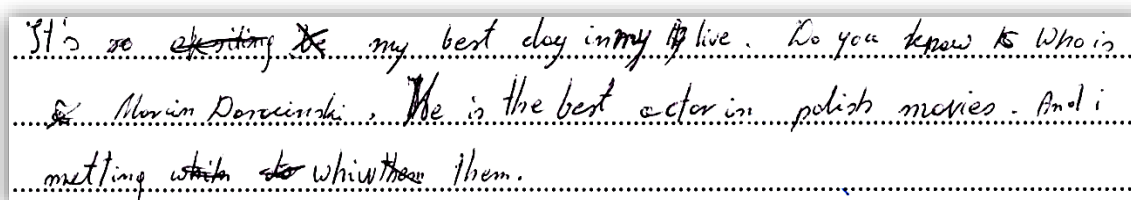 It's so eksiting be my best day in my live. Do you know who is
Marcin Dorocinski, He is the best actor in polish movies. And i
metting whith whiw them.